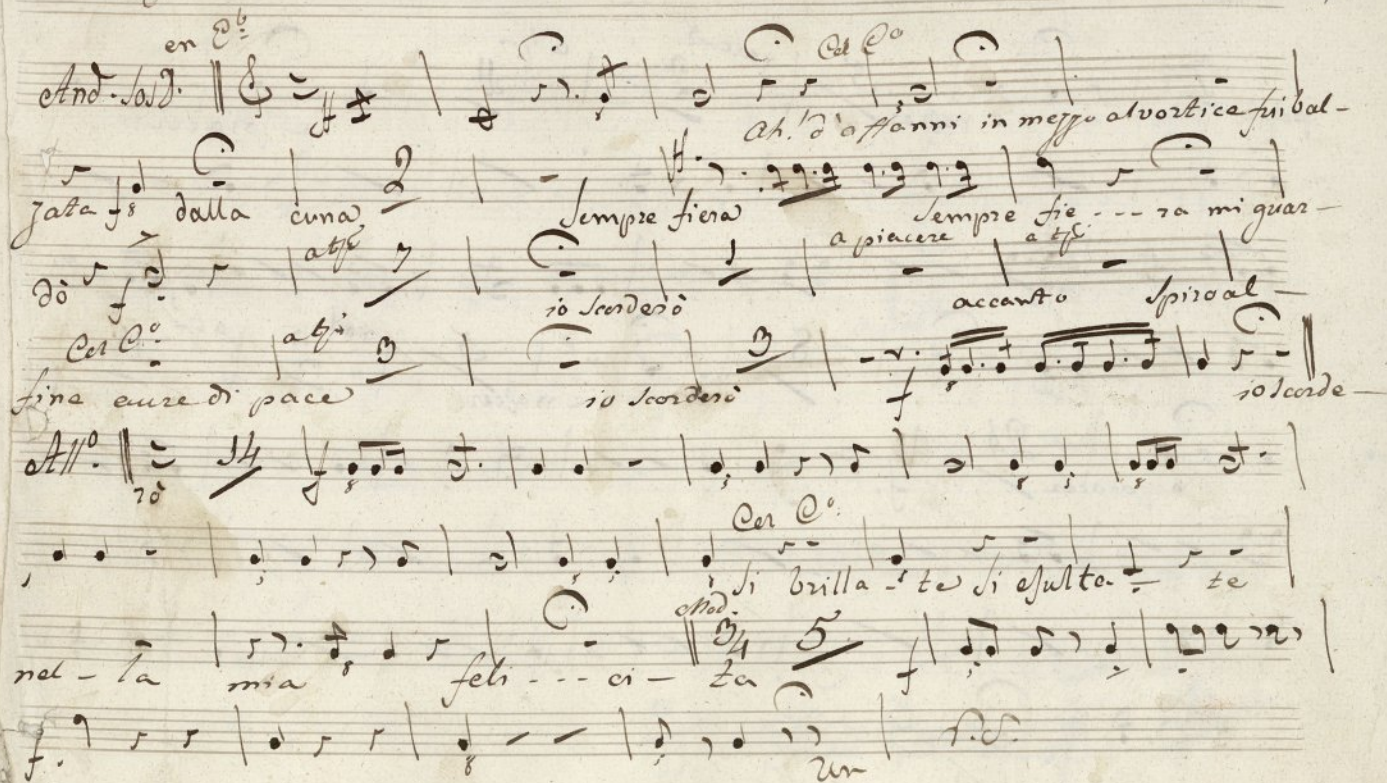 en E♭
And. Sos. Col C°
Ah! d'affanni in mezzo al vortice fui bal-
zata dalla cuna 2 Sempre fiera Sempre fie - - - ra mi guar-
a piacere
dò io scorderò 1 accanto Spiro al-
Col C° 3 3
fine aure di pace io scorderò io scorde-
All°. rò 14
Col C°
Si brilla - te Si esulta - te
Mod. 3/4 5
nel - la mia feli - - - ci - ta f
f.